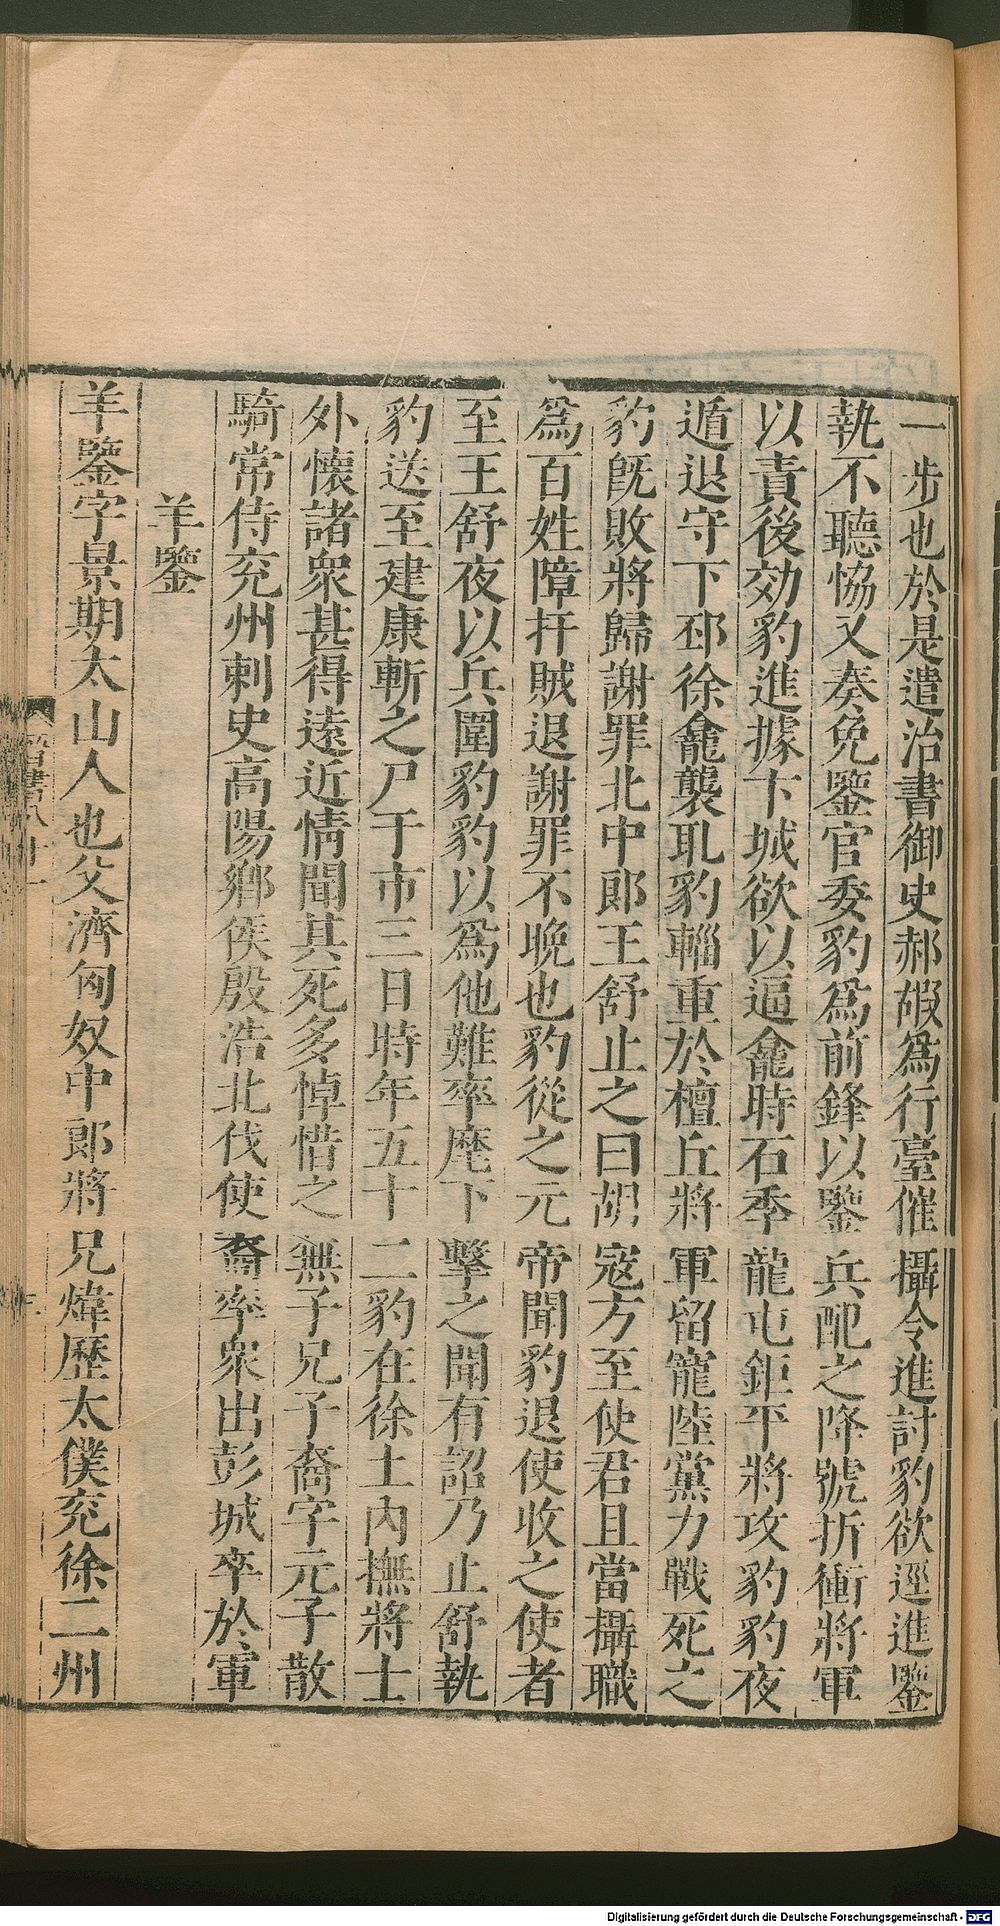 一步也於是遣治書御史郝嘏爲行臺催攝令進討豹欲逕進鑒
執不聽恊又奏免鑒官委豹爲前鋒以鑒兵配之降號折衝將軍
以責後効豹進據卞城欲以逼龕時石季龍屯鉅平將攻豹豹夜
遁退守下邳徐龕襲取豹輜重於檀丘將軍留寵陸黨力戰死之
豹旣敗將歸謝罪北中郎王舒止之曰胡寇方至使君且當攝職
爲百姓障扞賊退謝罪不晚也豹從之元帝聞豹退使收之使者
至王舒夜以兵圍豹豹以爲他難率麾下擊之聞有詔乃止舒執
豹送至建康斬之尸于市三日時年五十二豹在徐土內撫將士
外懷諸衆甚得遠近情聞其死多悼惜之無子兄子裔字元子散
騎常侍兖州刺史高陽鄉侯殷浩北伐使裔率衆出彭城卒於軍
羊鑒
羊鑒字景期太山人也父濟匈奴中郎將兄煒歷太僕兖徐二州
晉書八十一
Digitalisierung gefördert durch die Deutsche Forschungsgemeinschaft - DFG